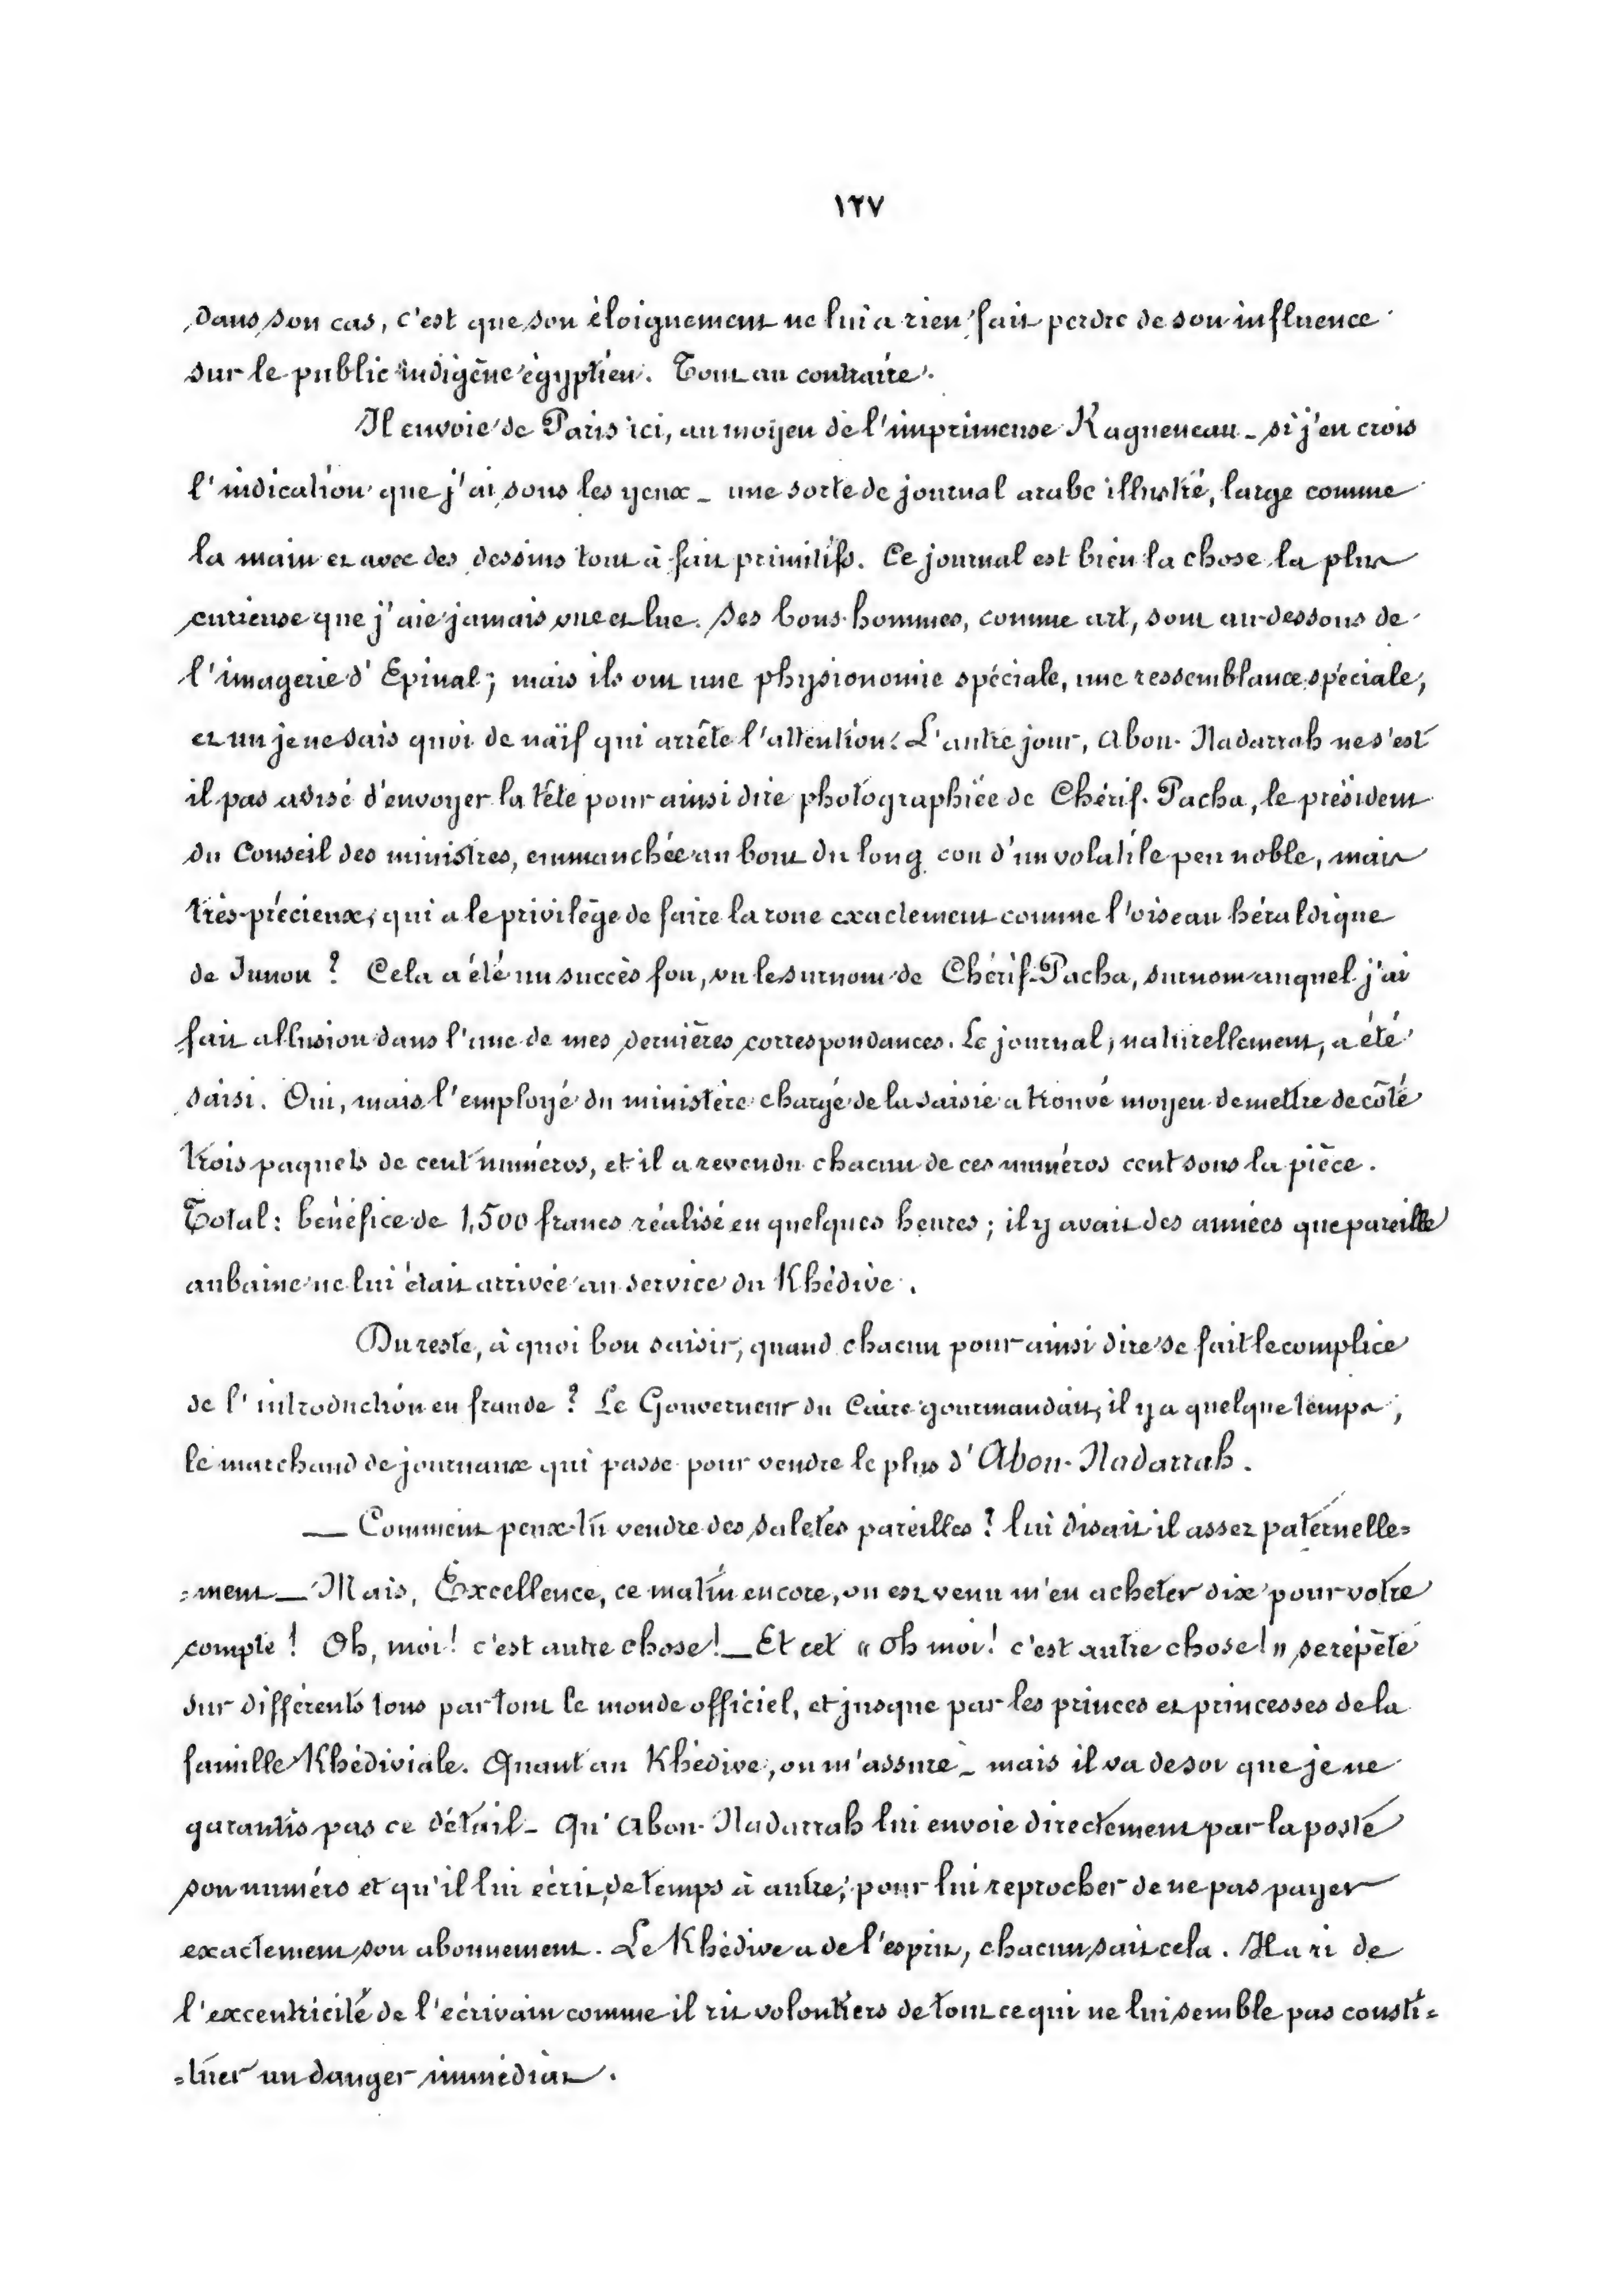 ١٢٧
dans son cas, c'est que son éloignement ne lui a rien fait perdre de son influence
sur le public indigène égyptien. Tout au contraire.
Il envoie de Paris ici, au moyen de l'imprimeuse Ragueneau _ si j'en crois
l'indication que j'ai sous les yeux _ une sorte de journal arabe illustré, large comme
la main et avec des dessins tout à fait primitifs. Ce journal est bien la chose la plus
curieuse que j'aie jamais vue et lue. Ses bons-hommes, comme art, sont au-dessous de
l'imagerie d'Epinal; mais ils ont une physionomie spéciale, une ressemblance spéciale,
et un je ne sais quoi de naïf qui arrête l'attention. L'autre jour, Abou-Nadarrah ne s'est
il pas avisé d'envoyer la tête pour ainsi dire photographiée de Chérif-Pacha, le président
du Conseil des ministres, emmanchée au bout du long cou d'un volatile peu noble, mais
très-précieux, qui a le privilège de faire la roue exactement comme l'oiseau héraldique
de Junon ? Cela a été un succès fou, vu le surnom de Chérif-Pacha, surnom auquel j'ai
fait allusion dans l'une de mes dernières correspondances. Le journal, naturellement, a été
saisi. Oui, mais l'employé du ministère chargé de la saisie a trouvé moyen de mettre de côté
trois paquets de cent numéros, et il a revendu chacun de ces numéros cent sous la pièce.
Total: bénéfice de 1,500 francs réalisé en quelques heures; il y avait des années que pareille
aubaine ne lui était arrivée au service du Khédive.
Du reste, à quoi bon saisir, quand chacun pour ainsi dire se fait le complice
de l'introduction en fraude ? Le Gouverneur du Caire gourmandait, il y a quelque temps,
le marchand de journaux qui passe pour vendre le plus d'Abou-Nadarrah.
— Comment peux-tu vendre des saletés pareilles ? lui disait il assez paternelle=
=ment — Mais, Excellence, ce matin encore, on est venu m'en acheter dix pour votre
compte ! Oh, moi! c'est autre chose! — Et cet « oh moi! c'est autre chose! » se répète
sur différents tons par tout le monde officiel, et jusque par les princes et princesses de la
famille Khédiviale. Quant au Khédive, on m'assure _ mais il va de soi que je ne
garantis pas ce détail _ Qu'Abou-Nadarrah lui envoie directement par la poste
son numéro et qu'il lui écrit, de temps à autre, pour lui reprocher de ne pas payer
exactement son abonnement. Le Khédive a de l'esprit, chacun sait cela. Il a ri de
l'excentricité de l'écrivain comme il rit volontiers de tout ce qui ne lui semble pas consti=
=tuer un danger immédiat.